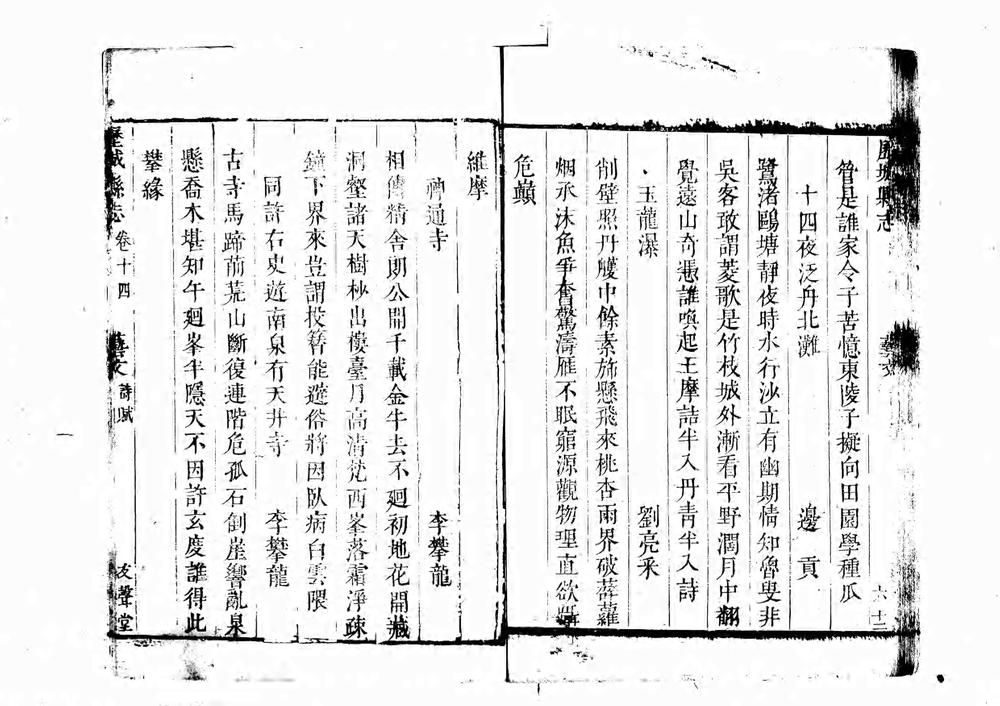 歷城縣志
藝文
六十三
管是誰家令子苦憶東陵子擬向田園學種瓜
十四夜泛舟北灘 邊貢
鷺渚鷗塘靜夜時水行沙立有幽期情知魯叟非
吳客敢謂菱歌是竹枝城外漸看平野濶月中翻
覺遠山奇憑誰喚起王摩詰半入丹青半入詩
玉龍瀑 劉亮采
削壁照丹雘中餘素旆懸飛來桃杏雨界破薜蘿
烟承沫魚爭奮驚濤雁不眠窮源觀物理直欲躡
危巔
維摩
神通寺 李攀龍
相傳精舍朗公開千載金牛去不廻初地花開藏
洞壑諸天樹杪出樓臺月高清梵西峯落霜淨疎
鐘下界來豈謂投簪能避俗將因臥病白雲隈
同許右史遊南泉有天井寺 李攀龍
古寺馬蹄前荒山斷復連階危孤石倒崖響亂泉
懸喬木堪知午廻峯半隱天不因許玄度誰得此
攀緣
歷城縣志 卷十四 藝文 詩賦 友聲堂